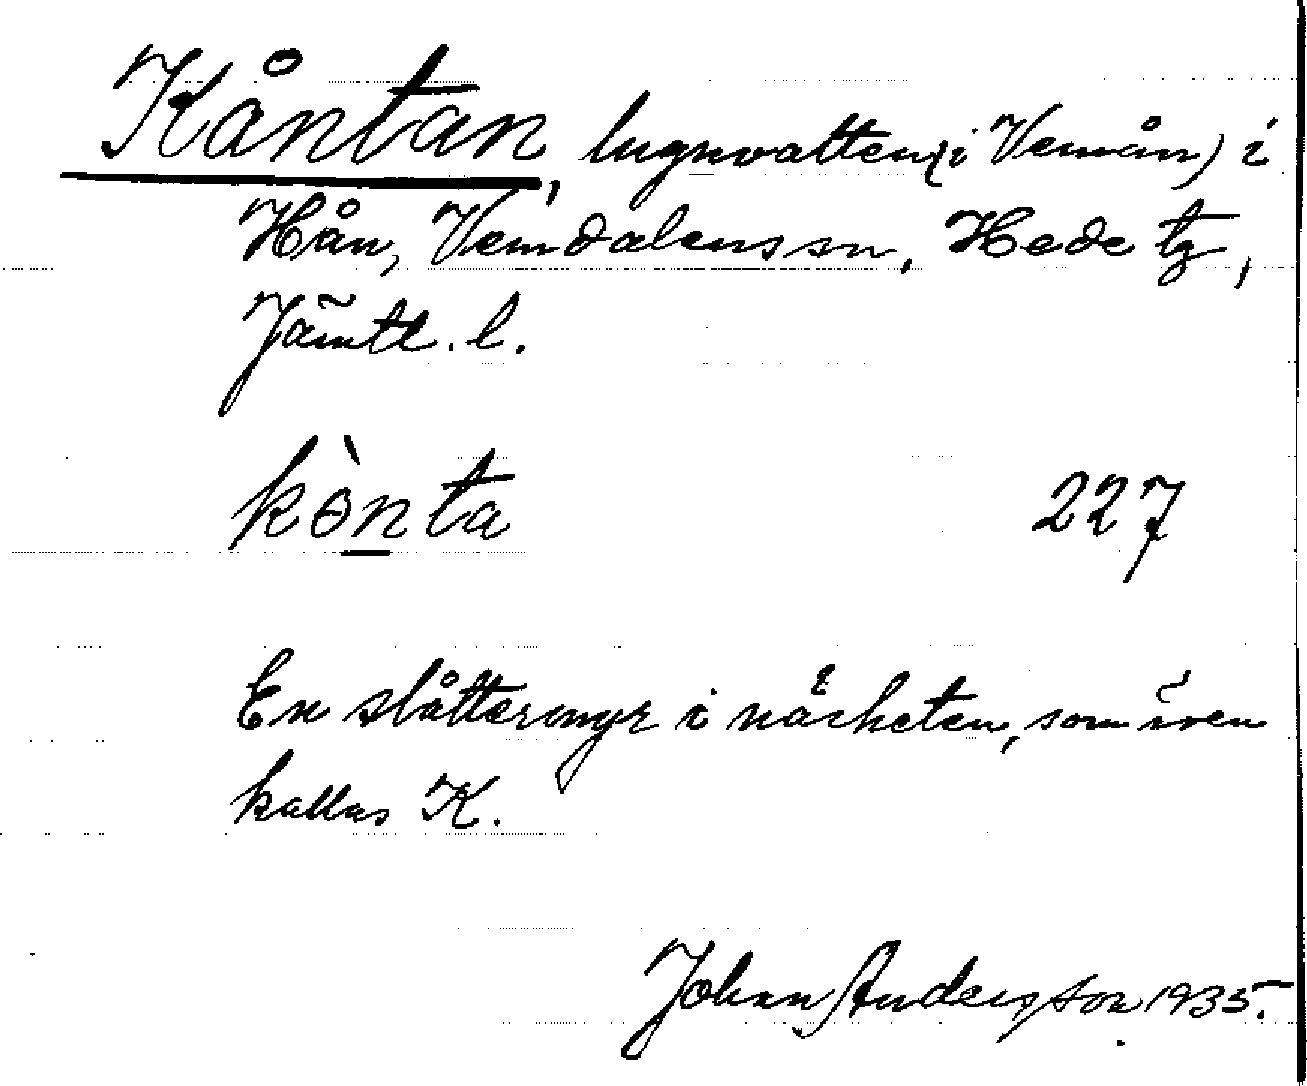 Kåntan, lugnvatten (i Vemån) i
Hån, Vemdalens sn, Hede tg,
Jämtl. l.
kònta 227
En slåttermyr i närheten, som även
kallas K.
Johan Andersson 1935.